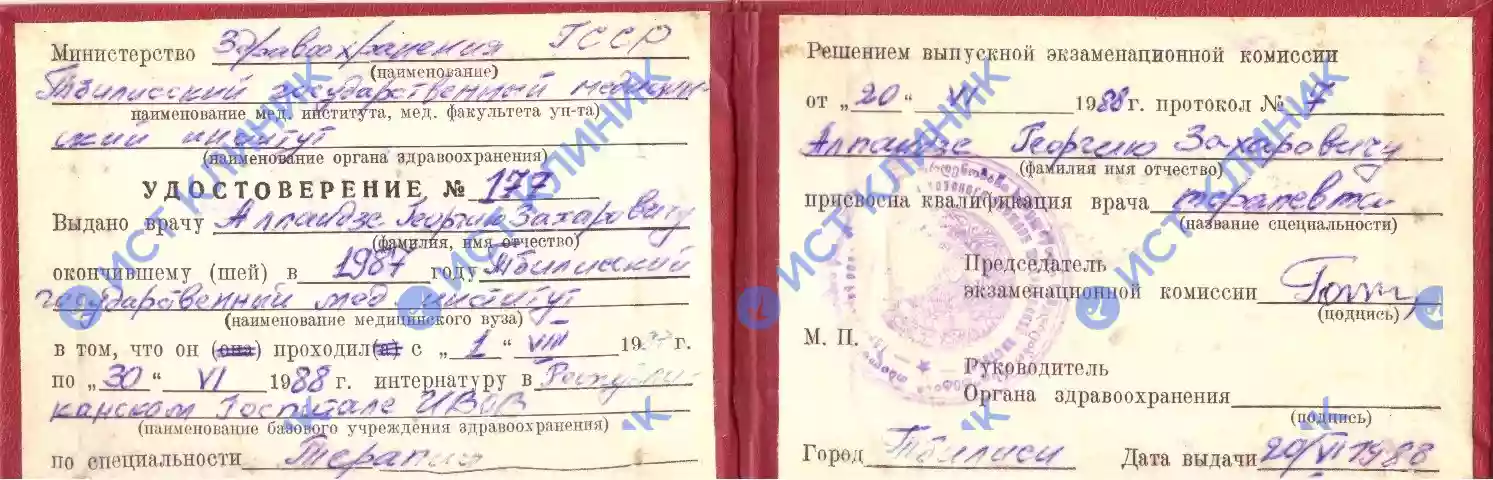 Министерство Здравоохранения ГССР
(наименование)
Тбилисский государственный медицин-
наименование мед. института, мед. факультета ун-та)
ский институт
(наименование органа здравоохранения)
УДОСТОВЕРЕНИЕ № 177
Выдано врачу Алпаидзе Георгию Захаровичу
(фамилия, имя отчество)
окончившему (шей) в 1987 году Тбилисский
государственный мед институт
(наименование медицинского вуза)
в том, что он (она) проходил(а) с „1“ VIII 1987 г.
по „30“ VI 1988 г. интернатуру в Республи-
канском Госпитале ИВОВ
(наименование базового учреждения здравоохранения)
по специальности Терапия
Решением выпускной экзаменационной комиссии
от „20“ VI 1988 г. протокол № 7
Алпаидзе Георгию Захаровичу
(фамилия имя отчество)
присвоена квалификация врача терапевта
(название специальности)
Председатель
экзаменационной комиссии
(подпись)
М. П.
Руководитель
Органа здравоохранения
(подпись)
Город Тбилиси Дата выдачи 20/VI 1988
ИСТ КЛИНИК
ИСТ КЛИНИК
ИСТ КЛИНИК
ИСТ КЛИНИК